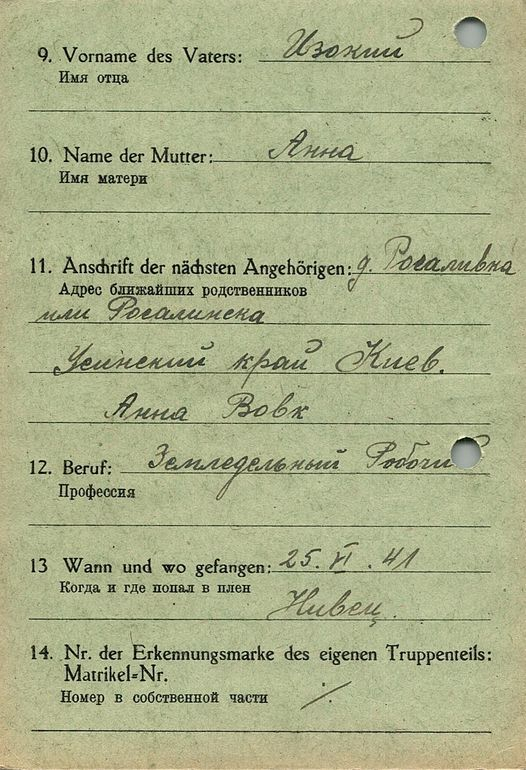 9. Vorname des Vaters: Изокий
Имя отца
10. Name der Mutter: Анна
Имя матери
11. Anschrift der nächsten Angehörigen: д. Росаливка
Адрес ближайших родственников
или Росалинска
Усинский край Киев.
Анна Вовк
12. Beruf: Земледельный Робочий
Профессия
13 Wann und wo gefangen: 25. VI. 41
Когда и где попал в плен
Нивец.
14. Nr. der Erkennungsmarke des eigenen Truppenteils:
Matrikel-Nr.
Номер в собственной части ·/.